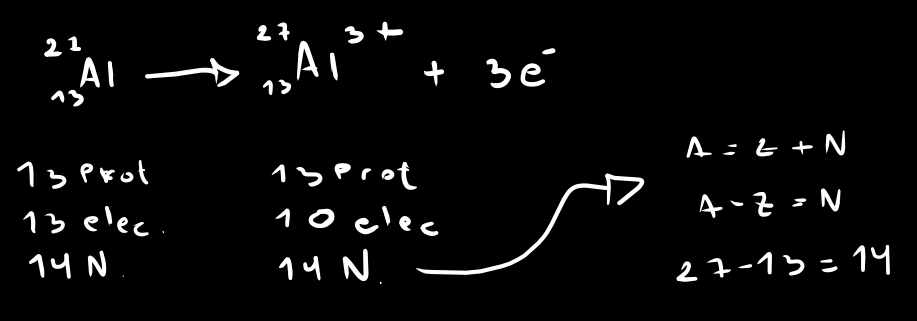 ²⁷₁₃Al → ²⁷₁₃Al³⁺ + 3e⁻
13 Prot
13 elec.
14 N.
13 Prot
10 elec
14 N.
A = Z + N
A - Z = N
27-13 = 14